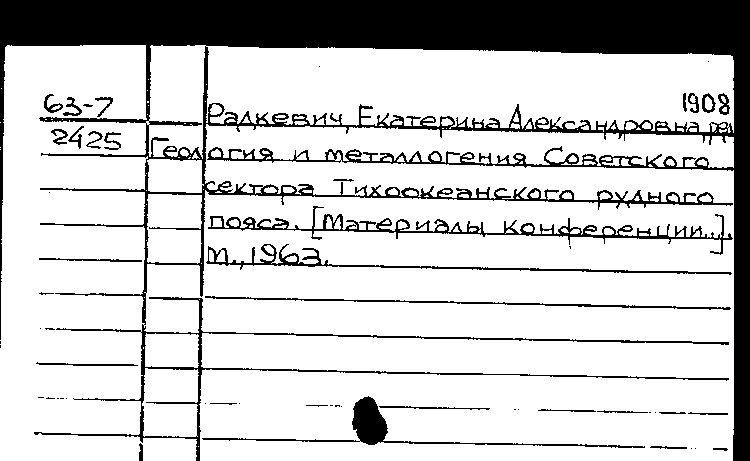 1908
63-7 Радкевич, Екатерина Александровна, ред
2425 Геология и металлогения Советского
сектора Тихоокеанского рудного
пояса. [Материалы конференции..].
М., 1963.